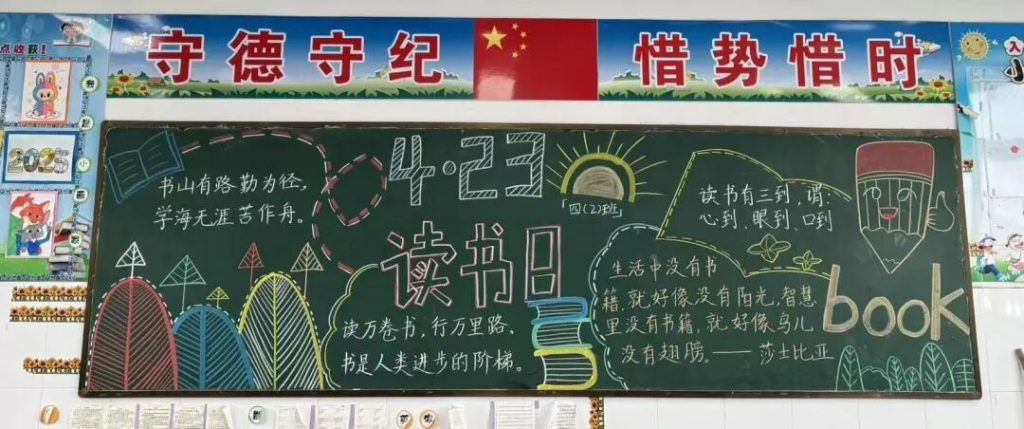 守德守纪
惜势惜时
点收获！
2025
4·23
读书日
书山有路勤为径，
学海无涯苦作舟。
「四(2)班」
读万卷书，行万里路。
书是人类进步的阶梯。
读书有三到，谓：
心到、眼到、口到
生活中没有书
籍，就好像没有阳光，智慧
里没有书籍，就好像鸟儿
没有翅膀。——莎士比亚
book